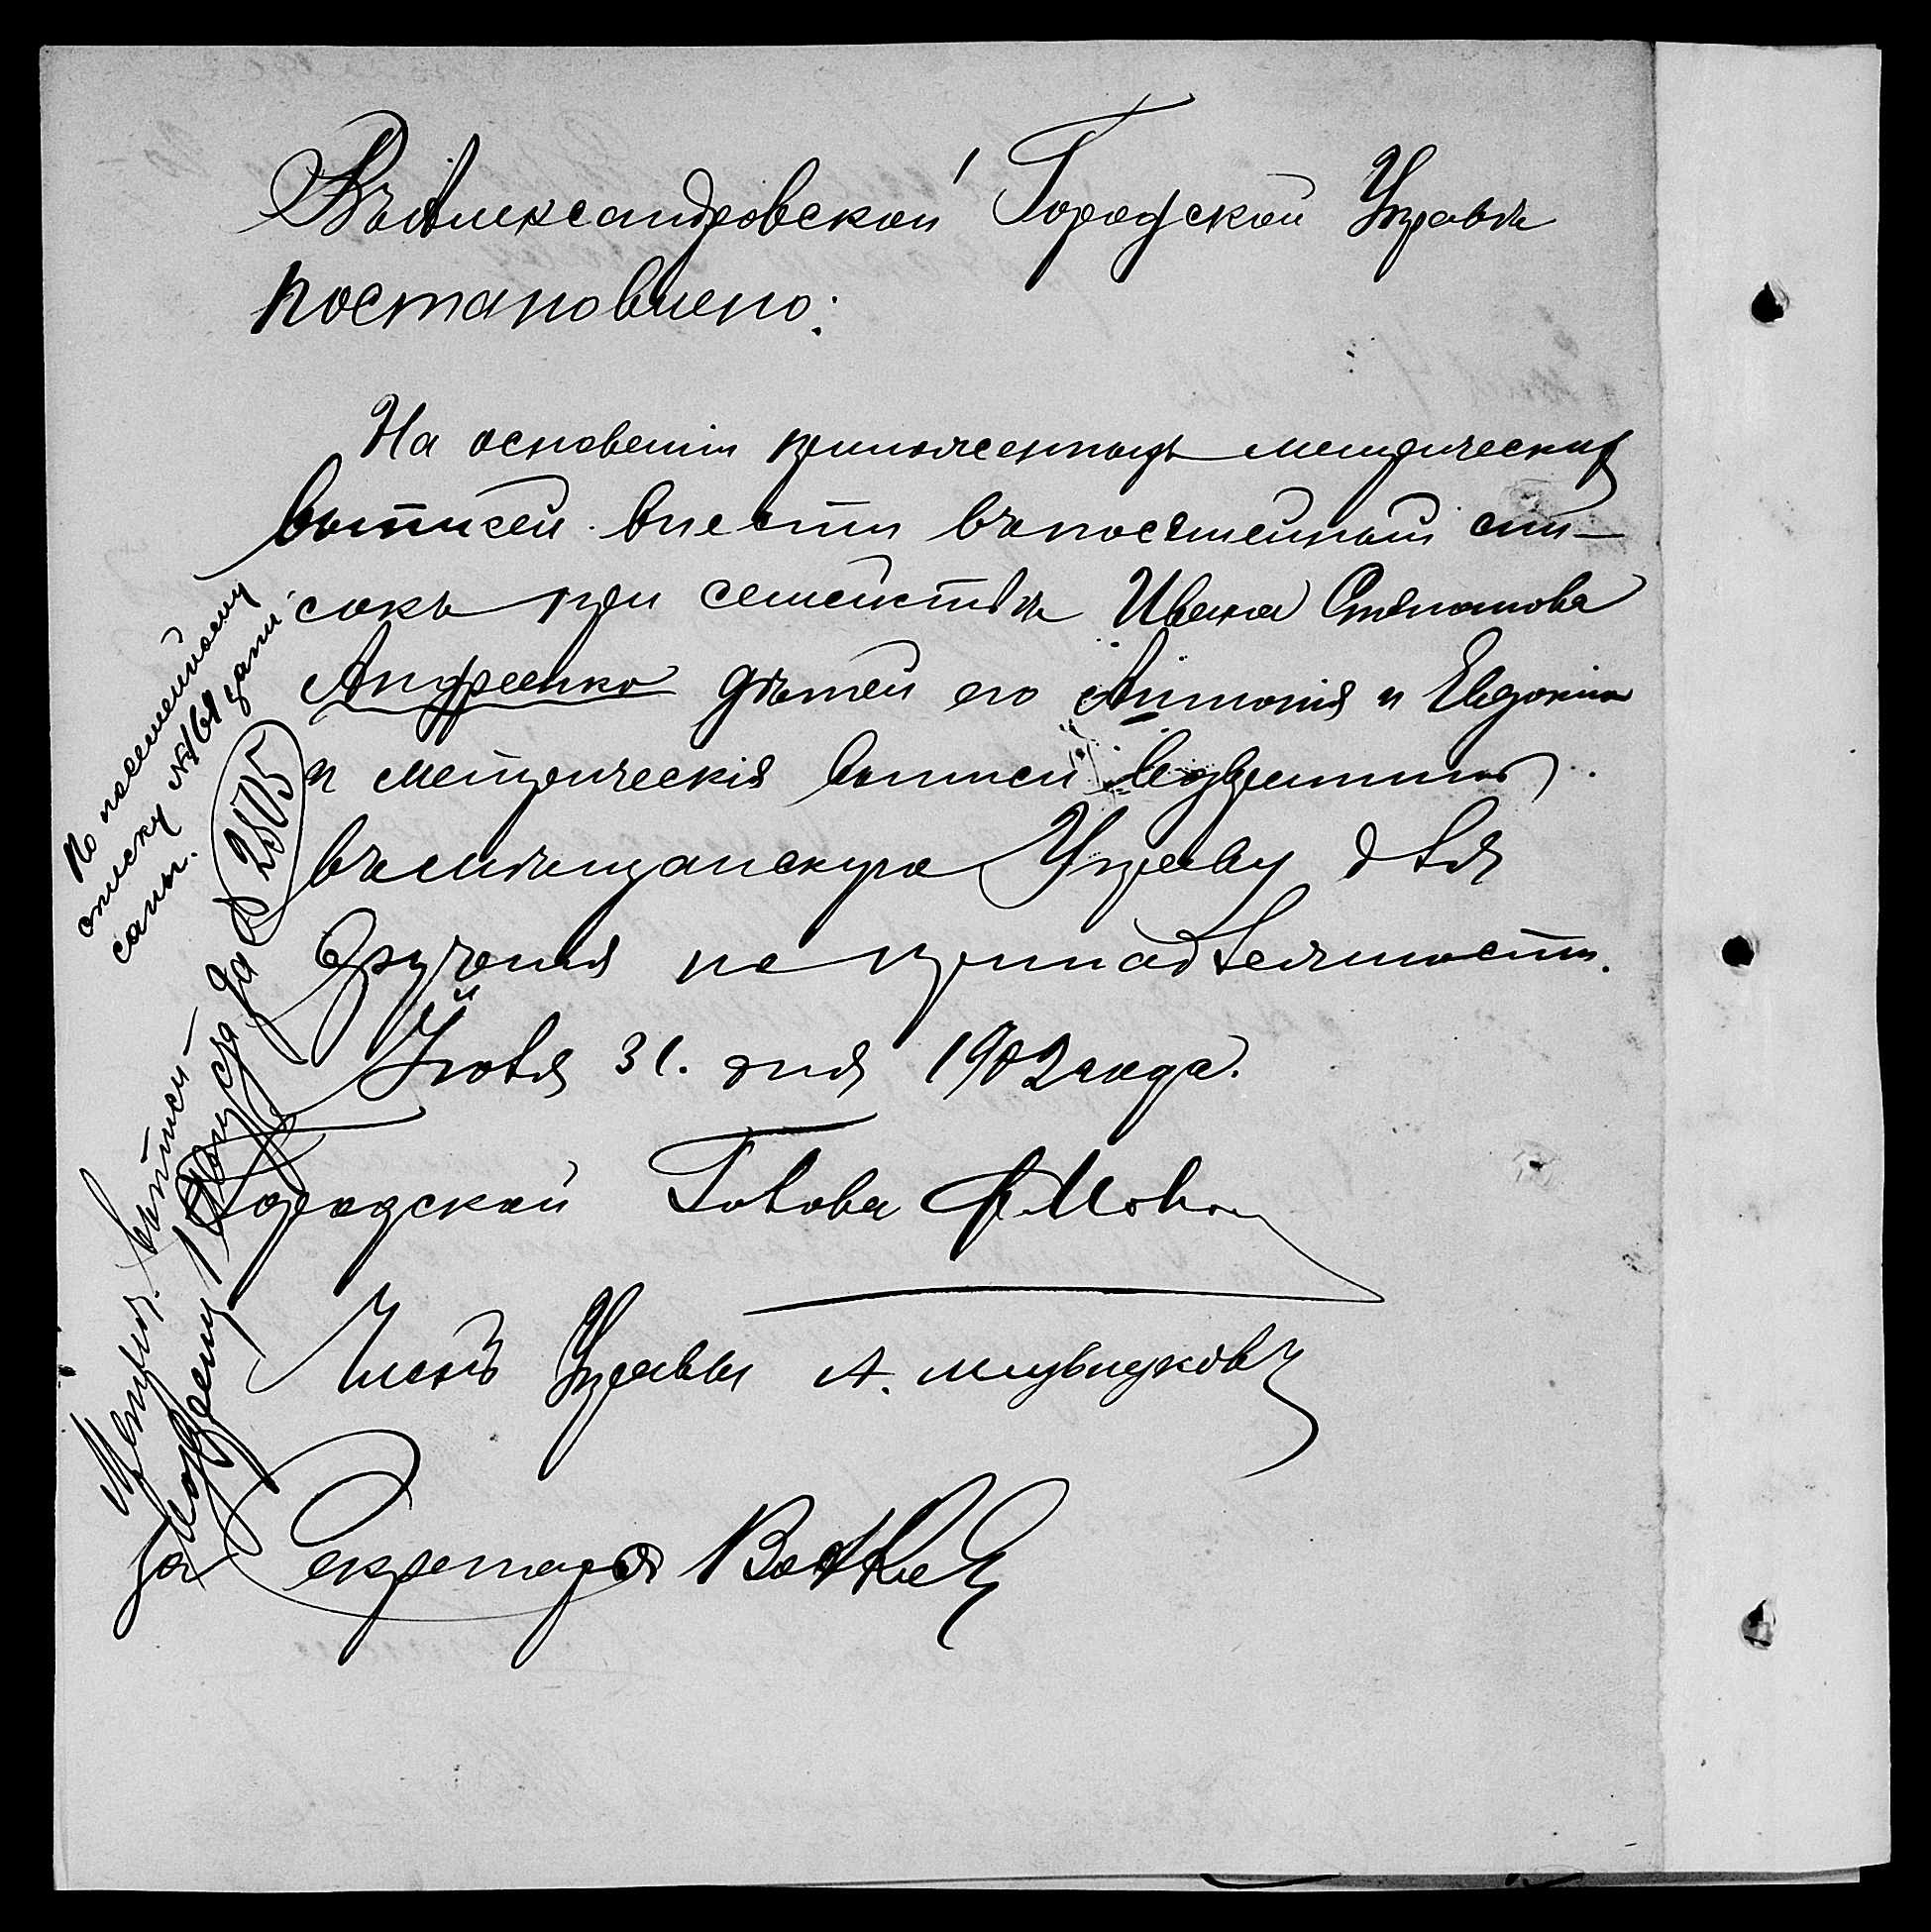 Въ Александровской Городской Управѣ
постановлено:
На основаніи приложенныхъ метрическихъ
выписей внести въ посемейный спи-
сокъ при семействѣ Ивана Степанова
Андреенко дѣтей его Антонія и Евдокію
и метрическія выписи возвратить
въ мѣщанскую Управу для
врученія по принадлежности.
Іюля 31. дня 1902 года.
Городской Голова
Членъ Управы А.
За Секретаря
По посемейному
списку № запи
саны.
Метрич. выписи
возвращены 1 Августа за № 2505